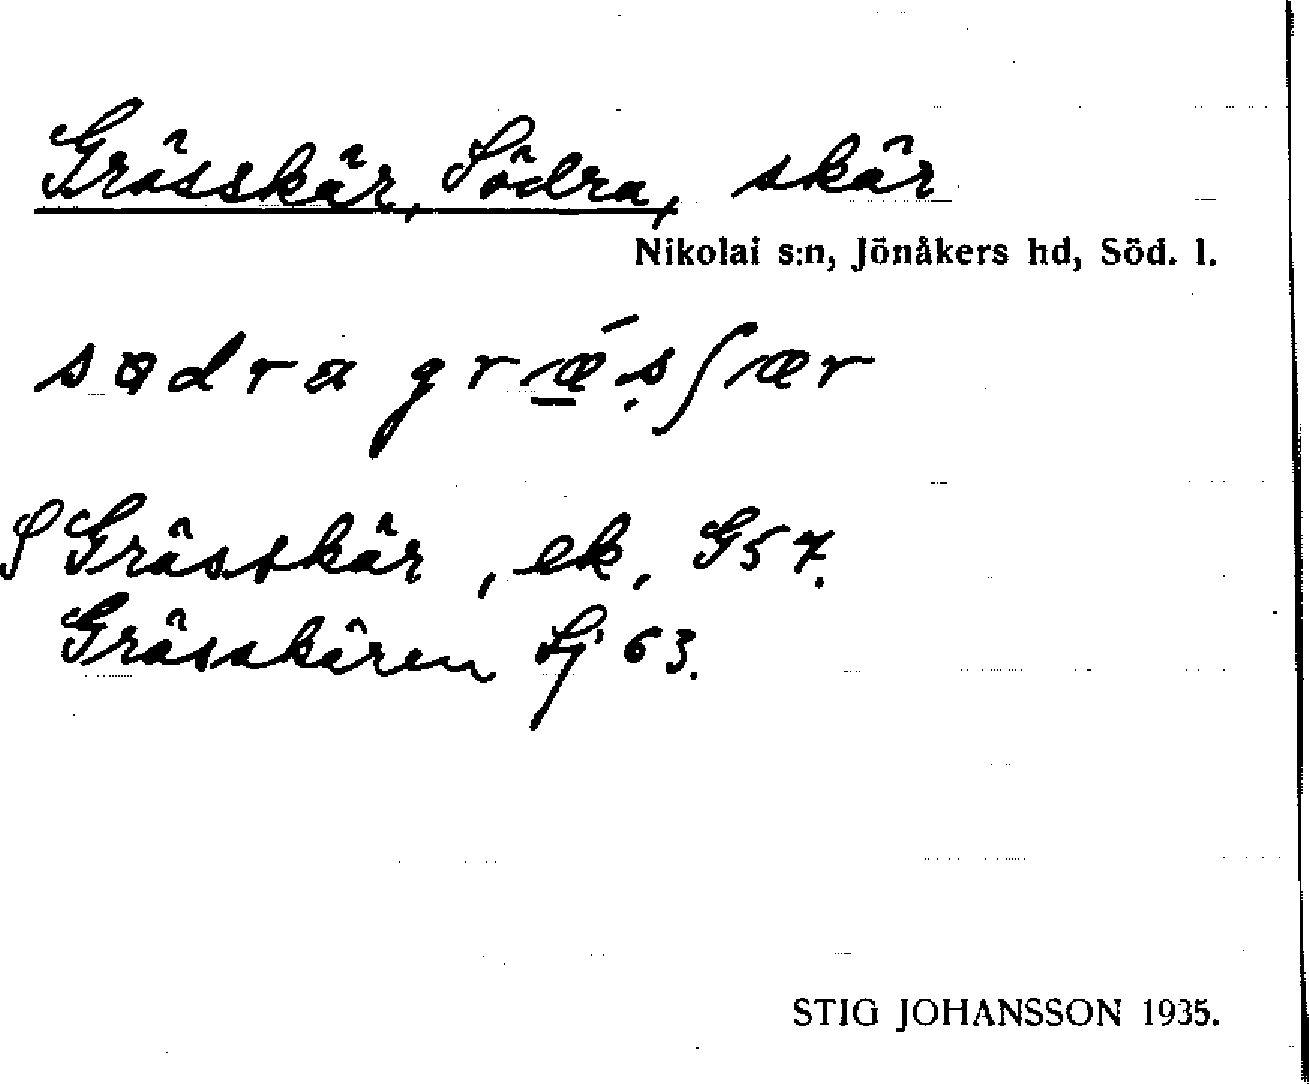 Grässkär, Södra, skär
Nikolai s:n, Jönåkers hd, Söd. l.
sødra grǽ̱sʃær
S Grässkär, ek. G57.
Grässkären Sj 63.
STIG JOHANSSON 1935.